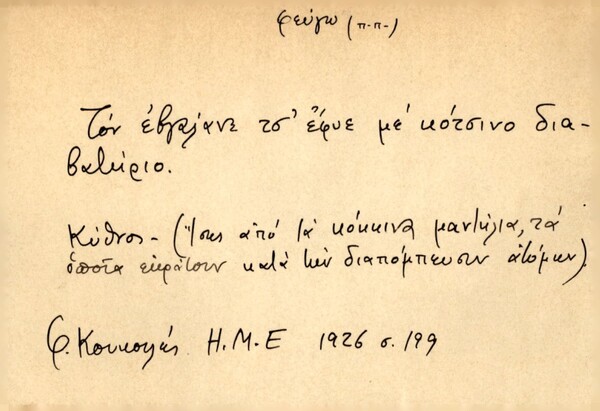 φεύγω (π.π.)
Τόν ἐβγαλάνε τσ' ἔφυε μέ κότσινο δια-
βατήριο.
Κύθνος - (Ἴσως ἀπό τά κόκκινα μαντήλια, τά
ὁποῖα ἐκράτουν κατά τήν διαπόμπευσιν ἀτόμων).
Φ. Κουκουλές Η.Μ.Ε 1926 σ. 199